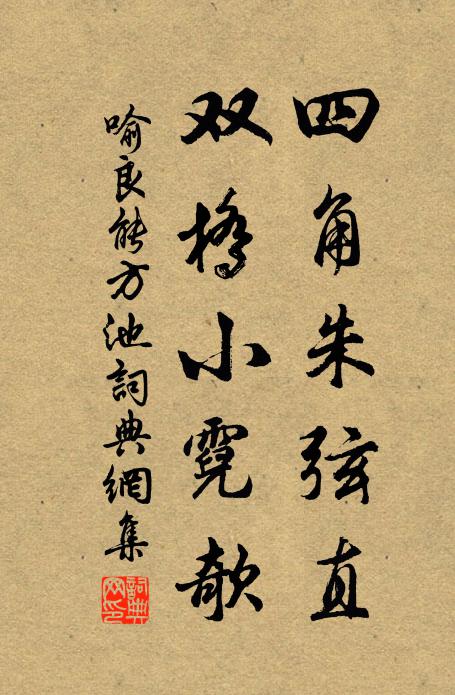 四角朱弦直
双桥小霓欹
喻良能方池詞典網集
詞典网印